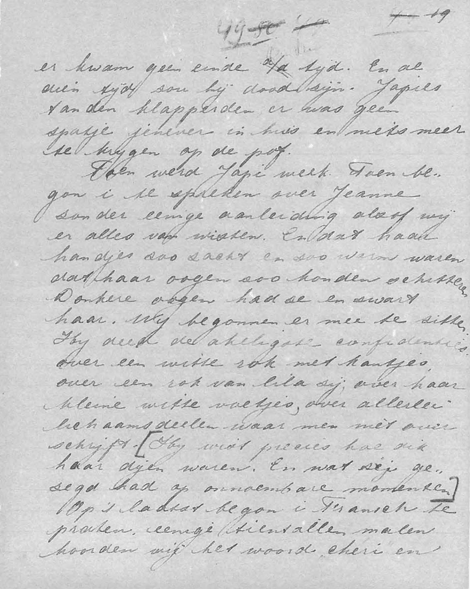 49 50
19
er kwam geen einde a/d tijd. En al
dien tijd sou hij dood sijn. Japies
tanden klapperden er was geen
spatje jenever in huis en niets meer
te krygen op de pof.
Toen werd Japi week. Toen be-
gon i te spreken over Jeanne
sonder eenige aanleiding alsof wij
er alles van wisten. En dat haar
handjes soo sacht en soo warm waren
dat haar oogen soo konden schitteren
Donkere oogen had se en swart
haar. Wij begonnen er mee te sitten.
Hy deed de akeligste confidenties
over een witte rok met kantjes
over een rok van lila sij, over haar
kleine witte voetjes, over allerlei
lichaamsdeelen waar men niet over
schrijft. [Hy wist precies hoe dik
haar dyen waren. En wat sij ge-
segd had op onnoembare momenten]
Op 't laatst begon i Fransch te
praten, eenige tientallen malen
hoorden wij het woord "cheri en